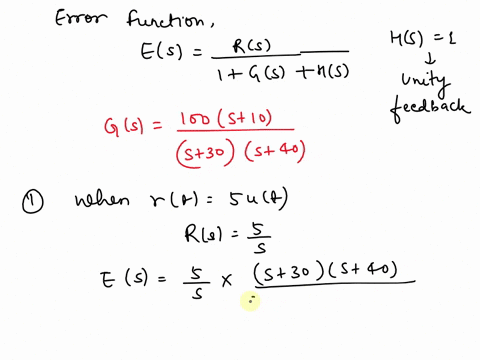 Error function,
E(s) = R(s) / 1 + G(s) + H(s)
H(s) = 1
↓
Unity
feedback
G(s) = 100 (s+10) / (s+30) (s+40)
① When r(t) = 5u(t)
R(s) = 5/s
E(s) = 5/s × (s+30)(s+40)